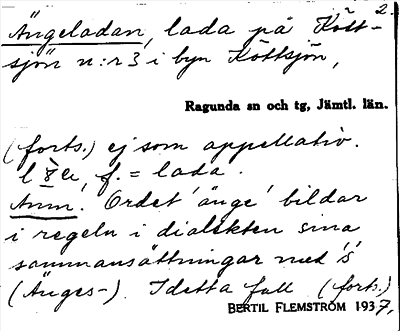 2.
Ängeladan, lada på Kött-
sjön n:r 3 i byn Köttsjön,
Ragunda sn och tg, Jämtl. län.
(forts.) ej som appellativ.
f. = lada.
Anm. Ordet 'änge' bildar
i regeln i dialekten sina
sammansättningar med 's'
(Änges-). I detta fall (forts.)
BERTIL FLEMSTRÖM 1937,